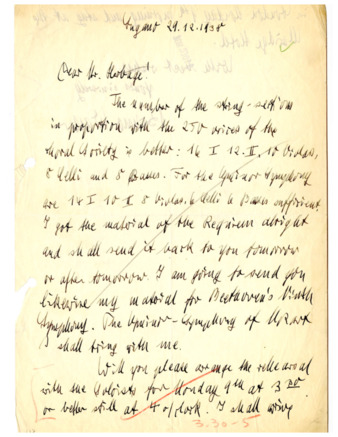 Lugano 29.12.1938
Dear Mr. Herbage!
The number of the string-sections
in proportion with the 250 voices of the
Choral Society is better: 14 I 12 II, 10 Violas,
8 Celli and 8 Basses. For the G minor Symphony
are 14 I 10 II 8 Violas, 6 Celli 4 Basses sufficient.
I got the material of the Requiem alright
and shall send it back to you tomorrow
or after tomorrow. I am going to send you
likewise my material for Beethoven's Ninth
Symphony. The G minor-Symphony of Mozart
I shall bring with me.
Will you please arrange the rehearsal
with the Soloists for Monday 9th at 3
or better still at 4 o/clock. I shall
3.30-5